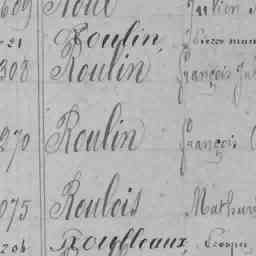 609 Roul Julien
21 Roulin, Pierre
308 Roulin François Jul
270 Roulin François
075 Roulois Mathur
206